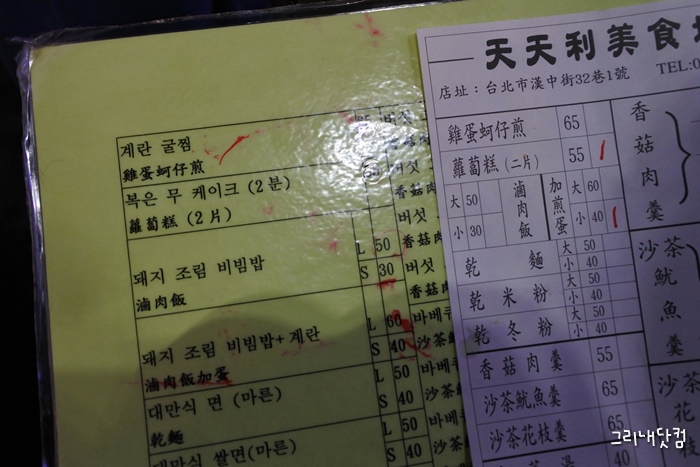 계란 굴찜
雞蛋蚵仔煎
복은 무 케이크 (2분)
蘿蔔糕 (2片)
돼지 조림 비빔밥
滷肉飯
L 50
S 30
돼지 조림 비빔밥+계란
滷肉飯加蛋
L 60
S 40
대만식 면 (마른)
乾麵
L 50
S 40
대만식 쌀면(마른)
L 50
버섯
香菇肉
버섯
香菇肉
버섯
香菇肉
바베큐
沙茶魷
바베큐
沙茶花
天天利美食坊
店址：台北市漢中街32巷1號 TEL:0
雞蛋蚵仔煎 65
蘿蔔糕(二片) 55
大 50 小 30 滷肉飯
加煎蛋 大 60 小 40
乾麵 大 50 小 40
乾米粉 大 50 小 40
乾冬粉 大 50 小 40
香菇肉羹 55
沙茶魷魚羹 65
沙茶花枝羹 65
40
香菇肉羹
沙茶魷魚羹
沙茶花
그리내닷컴